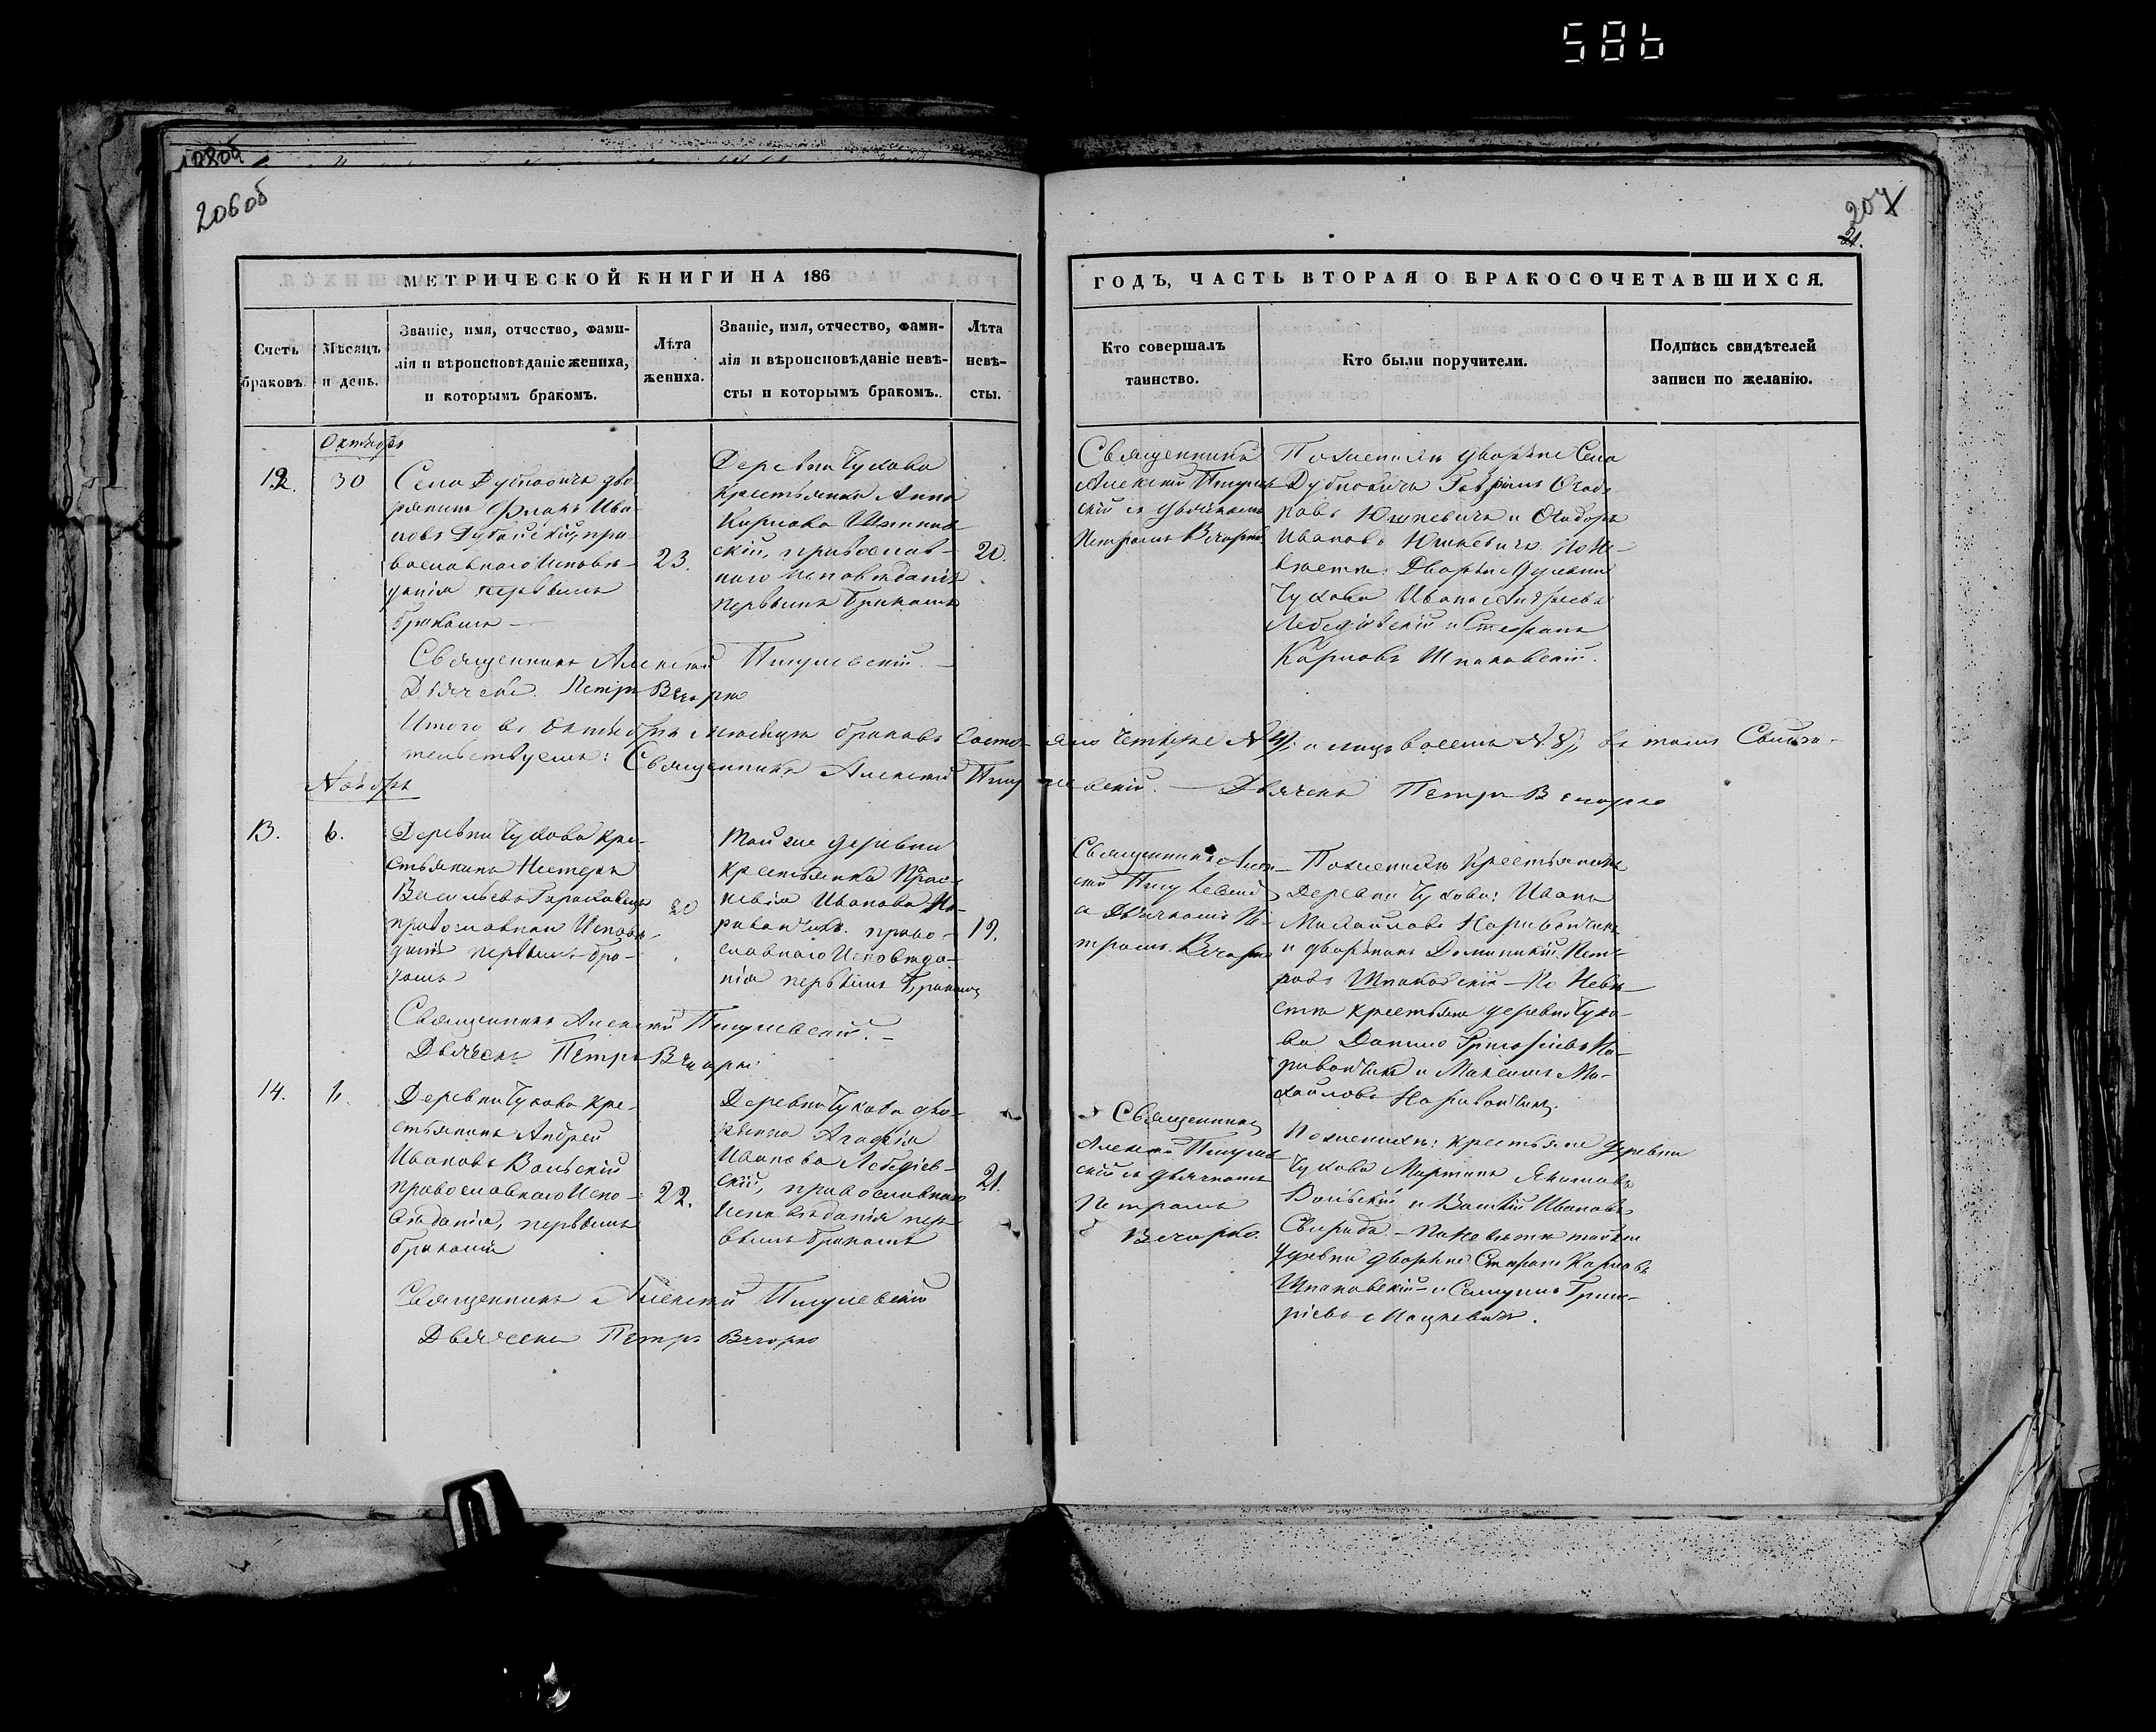 586
108об
206об
207
21.
МЕТРИЧЕСКОЙ КНИГИ НА 186
ГОДЪ, ЧАСТЬ ВТОРАЯ О БРАКОСОЧЕТАВШИХСЯ.
Счетъ браковъ.
Мѣсяцъ и день.
Званіе, имя, отчество, фами-
лія и вѣроисповѣданіе жениха,
и которымъ бракомъ.
Лѣта
жениха.
Званіе, имя, отчество, фами-
лія и вѣроисповѣданіе невѣ-
сты и которымъ бракомъ.
Лѣта
невѣ-
сты.
Кто совершалъ
таинство.
Кто были поручители.
Подпись свидѣтелей
записи по желанію.
Октябрь
12.
30
Села
дво-
рянинъ Ива-
новъ пра-
вославнаго Исповѣ-
данія первымъ
бракомъ
23.
Деревни Чухова
крестьянка Анна
Карпова Шпаков-
скій, православ-
наго исповѣданія
первымъ бракомъ
20.
Священникъ
Алексій
скій съ дьячкомъ
Петромъ Вечорко
По женихѣ дворяне Села
Юшкевичъ и Ѳедоръ
Ивановъ Юшкевичъ. По Не-
вѣстѣ: Дворяне деревни
Чухова Иванъ Андреевъ
Лебедзѣвскій и Стефанъ
Карповъ Шпаковскій.
Священникъ Алексій
Дьячекъ Петръ Вечорко
Итого въ Октябрѣ мѣсяцѣ браковъ состо-яло четыре №4, а лицъ восемь №8, въ томъ Свидѣ-
тельствуемъ: Священникъ Алексій
Дьячекъ Петръ Вечорко
Ноябрь
13.
6.
Деревни Чухова кре-
стьянинъ Нестеръ
Васильевъ
православнаго Исповѣ-
данія первымъ бра-
комъ
20
Той же деревни
крестьянка Прас-
кевія Иванова На-
риваньчикъ. право-
славнаго Исповѣда-
нія первымъ бракомъ
19.
Священникъ Алек-
сій
съ Дьячкомъ Пе-
тромъ Вечорко
По женихѣ Крестьянинъ
Деревни Чухова: Иванъ
Михайловъ Нариваньчикъ
и дворянинъ Доминикій Пет-
ровъ Шпаковскій — По Невѣ-
стѣ крестьяне деревни Чухо-
ва Данило Григорьевъ На-
риваньчикъ и Максимъ Ми-
хайловъ Нариваньчикъ.
Священникъ Алексій
Дьячекъ Петръ Вечорко
14.
6.
Деревни Чухова кре-
стьянинъ Андрей
Ивановъ Вольскій
православнаго Испо-
вѣданія, первымъ
бракомъ
22.
Деревни Чухова дво-
рянка Агафія
Иванова Лебедзѣв-
скій, православнаго
Исповѣданія пер-
вымъ бракомъ
21.
Священникъ
Алексій
скій съ дьячкомъ
Петромъ
Вечорко.
По женихѣ: крестьяне деревни
Чухова Мартинъ
Вольскій и Ивановъ
По Невѣстѣ той же
деревни дворяне Стефанъ Карповъ
Шпаковскій и Григо-
рьевъ Мацкевичъ.
Священникъ Алексій
Дьячекъ Петръ Вечорко